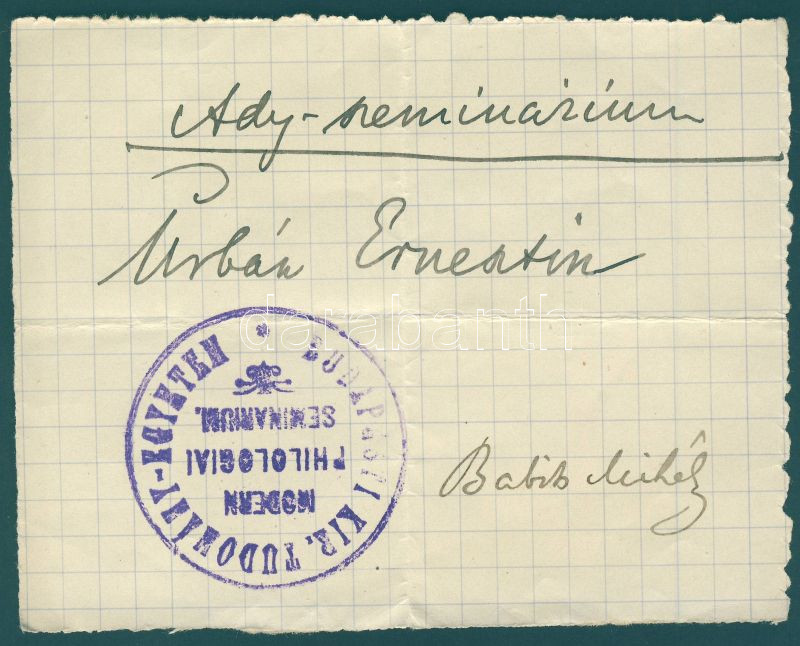 Ady-szeminárium
Urbán Ernesztin
darabanth
BUDAPESTI KIR. TUDOMÁNY-EGYETEM *
MODERN
PHILOLOGIAI
SEMINARIUM.
Babits Mihály